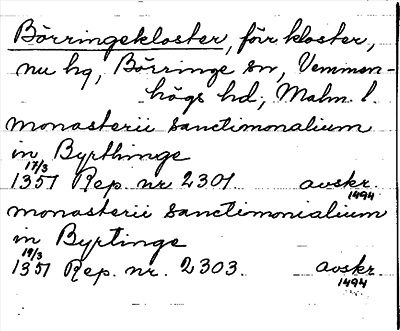 Börringekloster, förr kloster,
nu hg, Börringe sn, Vemmen-
högs hd, Malm. l.
monasterii sanctimonalium
in Byrthinge
17/3
1351 Rep. nr 2301 avskr.
1494
monasterii sanctimonialium
in Byrtinge
19/3
1351 Rep. nr. 2303. avskr.
1494